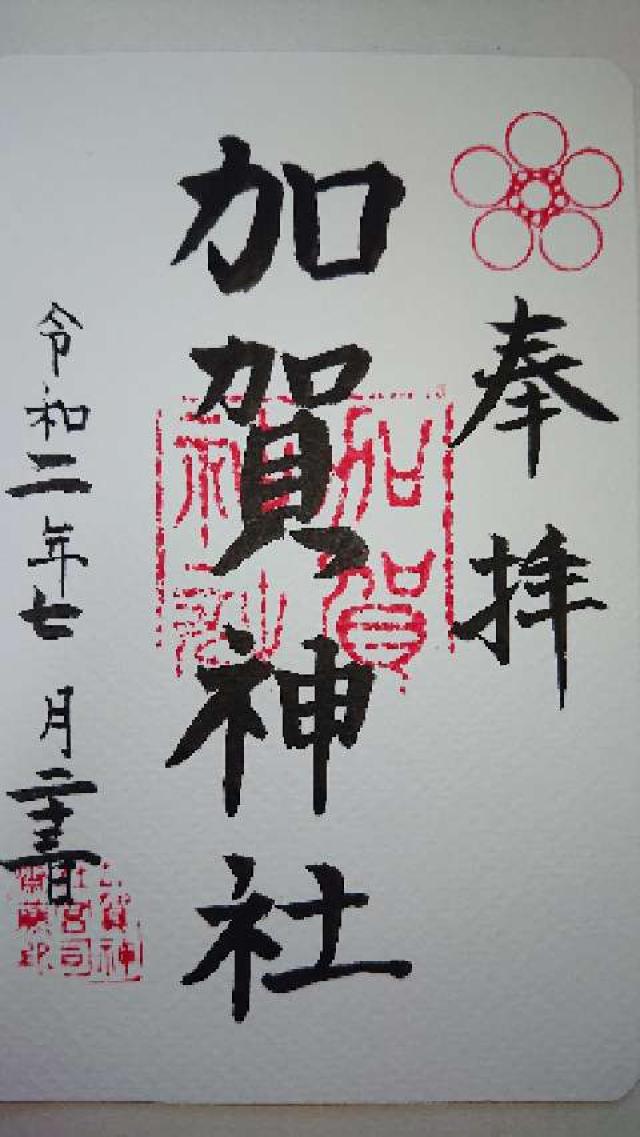 奉拝
加賀神社
加賀
神社
令和二年七月二十三日
加賀神
社宮司
齋藤印